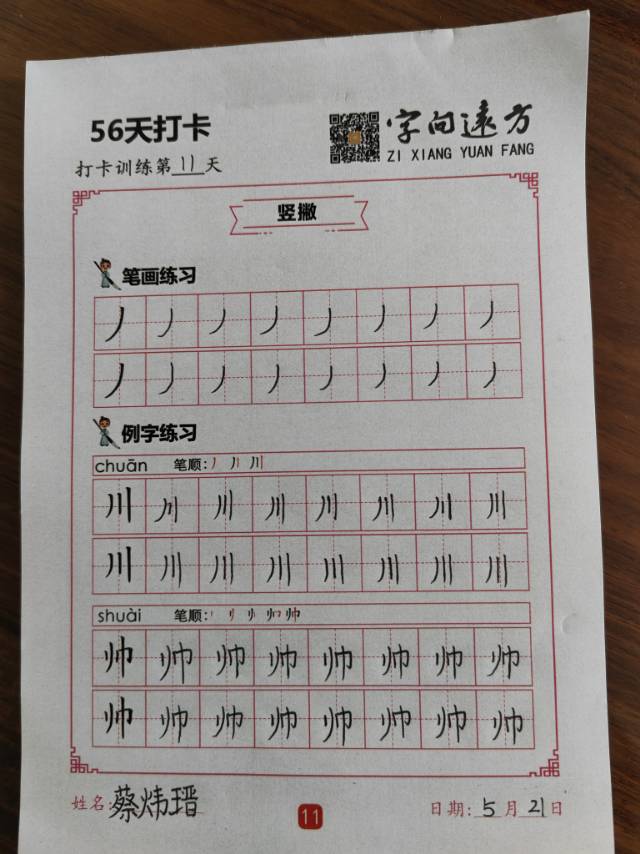 56天打卡
字向远方
ZI XIANG YUAN FANG
打卡训练第11天
竖撇
笔画练习
丿丿丿丿丿丿丿丿
丿丿丿丿丿丿丿丿
例字练习
chuān 笔顺:
川川川川川川川川
川川川川川川川川
shuài 笔顺:
帅帅帅帅帅帅帅帅
帅帅帅帅帅帅帅帅
姓名:蔡炜瑨
11
日期:5月21日